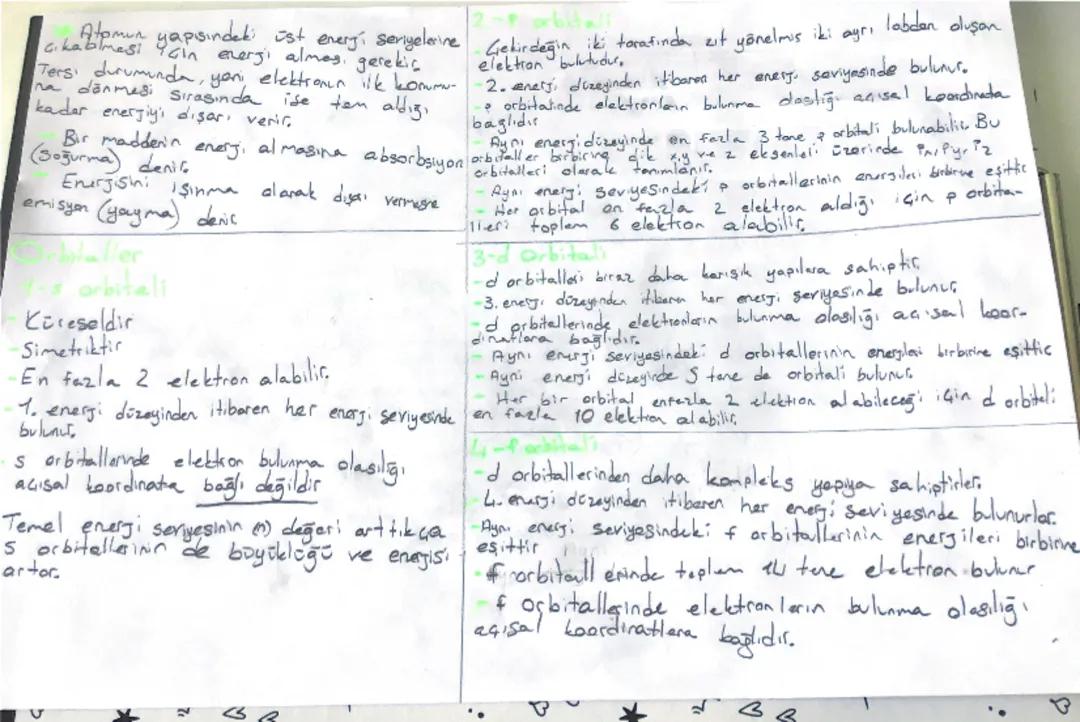 Atomun yapısındaki üst enerji seviyelerine
çıkabilmesi için enerji alması gerekir.
Tersi durumunda, yani elektronun ilk konumu-
na dönmesi sırasında ise tam aldığı
kadar enerjiyi dışarı verir.
- Bir maddenin enerji almasına absorbsiyon
(soğurma) denir.
- Enerjisini ışınma olarak dışarı vermesine
emisyon (yayma) denir
Orbitaller
1-s orbitali
- Küreseldir
- Simetriktir
- En fazla 2 elektron alabilir.
- 1. enerji düzeyinden itibaren her enerji seviyesinde
bulunur.
- s orbitallerinde elektron bulunma olasılığı
açısal koordinata bağlı değildir
Temel enerji seviyesinin (n) değeri arttıkça
s orbitallerinin de büyüklüğü ve enerjisi
artar.
2-p orbitali
- Çekirdeğin iki tarafında zıt yönelmiş iki ayrı lobdan oluşan
elektron bulutudur.
- 2. enerji düzeyinden itibaren her enerji seviyesinde bulunur.
- p orbitalinde elektronların bulunma olasılığı açısal koordinata
bağlıdır
- Aynı enerji düzeyinde en fazla 3 tane p orbitali bulunabilir. Bu
orbitaller birbirine dik x,y ve z eksenleri üzerinde Px, Py, Pz
orbitalleri olarak tanımlanır.
- Aynı enerji seviyesindeki p orbitallerinin enerjileri birbirine eşittir
- Her orbital en fazla 2 elektron aldığı için p orbita-
lleri toplam 6 elektron alabilir.
3-d Orbitali
- d orbitalleri biraz daha karışık yapılara sahiptir.
- 3. enerji düzeyinden itibaren her enerji seviyesinde bulunur
- d orbitallerinde elektronların bulunma olasılığı açısal koor-
dinatlara bağlıdır.
- Aynı enerji seviyesindeki d orbitallerinin enerjileri birbirine eşittir
- Aynı enerji düzeyinde 5 tane de orbitali bulunur.
- Her bir orbital enfazla 2 elektron alabileceği için d orbitali
en fazla 10 elektron alabilir.
4-f orbitali
- d orbitallerinden daha kompleks yapıya sahiptirler.
- 4. enerji düzeyinden itibaren her enerji seviyesinde bulunurlar.
- Aynı enerji seviyesindeki f orbitallerinin enerjileri birbirine
eşittir
- f orbitallerinde toplam 14 tane elektron bulunur
- f orbitallerinde elektronların bulunma olasılığı
açısal koordinatlara bağlıdır.